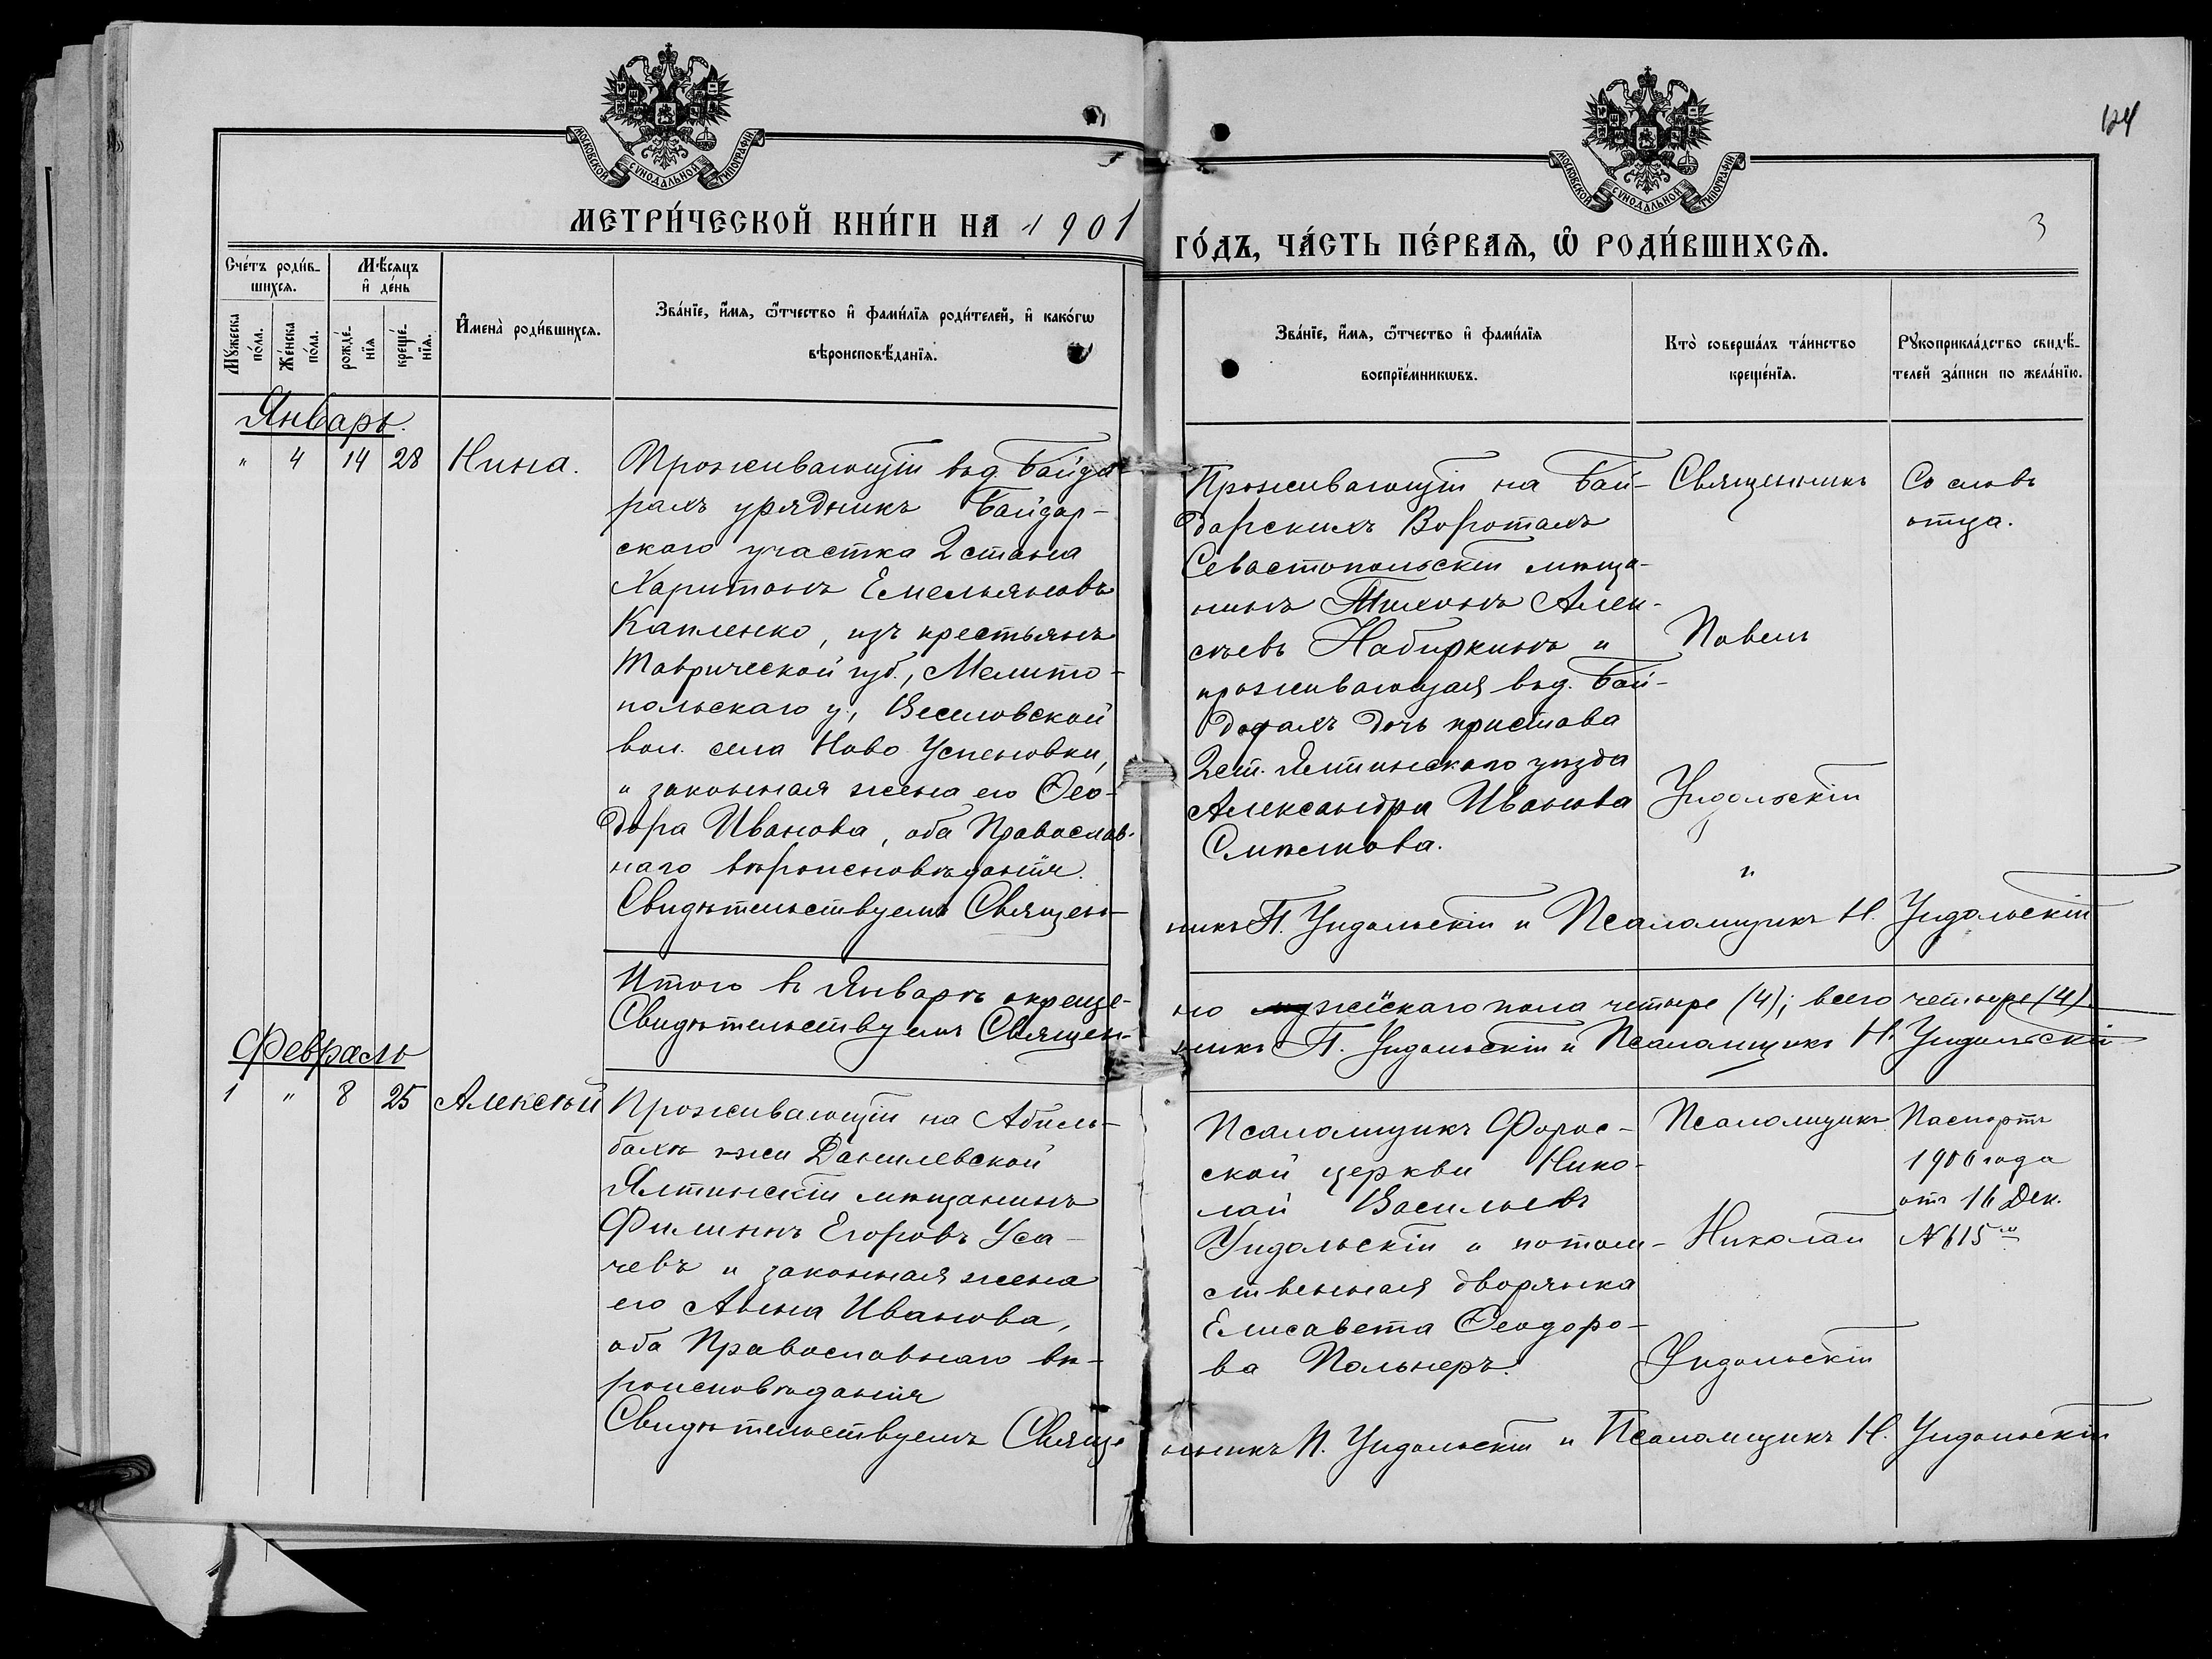 124
3
МОСКОВСКОЙ СУНОДАЛЬНОЙ ТИПОГРАФІИ
МОСКОВСКОЙ СУНОДАЛЬНОЙ ТИПОГРАФІИ
МЕТРИ́ЧЕСКОЙ КНИ́ГИ НА 1901
ГО́ДЪ, ЧА́СТЬ ПЕ́РВАѦ, Ѽ РОДИ́ВШИХСѦ.
Сче́тъ роди́в-
шихсѧ.
Мѣ́сѧцъ
и҆ де́нь
Мꙋ́жеска
по́ла.
Же́нска
по́ла.
рожде́-
нїѧ
креще́-
нїѧ.
И҆мена̀ роди́вшихсѧ.
Зва́нїе, и҆́мѧ, ѻ҆́тчество и҆ фами́лїѧ роди́телей, и҆ како́гѡ
вѣроисповѣ́данїѧ.
Зва́нїе, и҆́мѧ, ѻ҆́тчество и҆ фами́лїѧ
воспрїе́мникѡвъ.
Кто̀ соверша́лъ та́инство
креще́нїѧ.
Рꙋкоприкла́дство свидѣ́-
телей за́писи по жела́нїю.
Январь.
" 4 14 28 Нина.
Проживающій въ д. Байда-
рахъ урядникъ Байдар-
скаго участка 2 стана
Харитонъ Емельяновъ
Капленко, изъ крестьянъ
Таврической губ., Мелито-
польскаго у., Веселовской
вол. села Ново Успеновки,
и законная жена его Ѳео-
дора Иванова, оба Православ-
наго вѣроисповѣданія.
Свидѣтельствуемъ Священ-
Проживающій на Бай-
дарскихъ Воротахъ
Севастопольскій мѣща-
нинъ Тихонъ Алек-
сѣевъ Набиркинъ и
проживающая въ д. Бай-
дарахъ дочь пристава
2 ст. Ялтинскаго уѣзда
Александра Иванова
Смѣлкова.
Священникъ
Павелъ
Ундольскій
"
Со словъ
отца.
никъ П. Ундольскій и Псаломщикъ Н. Ундольскій
Итого въ Январѣ окреще-
но женскаго пола четыре (4); всего четыре (4)
Свидѣтельствуемъ Священ-
никъ П. Ундольскій и Псаломщикъ Н. Ундольскій
Февраль
1 " 8 25 Алексѣй
Проживающій на
г-жи Данилевской
Ялтинскій мѣщанинъ
Филиппъ Егоровъ Уса-
чевъ и законная жена
его Анна Иванова,
оба Православнаго вѣ-
роисповѣданія
Свидѣтельствуемъ Свяще-
Псаломщикъ Форос-
ской церкви Нико-
лай Васильевъ
Ундольскій и потом-
ственная дворянка
Елисавета Ѳеодоро-
ва Польнеръ.
Псаломщикъ
Николай
Ундольскій
Паспортъ
1900 года
отъ 16 Дек.
№ 615
нникъ П. Ундольскій и Псаломщикъ Н. Ундольскій